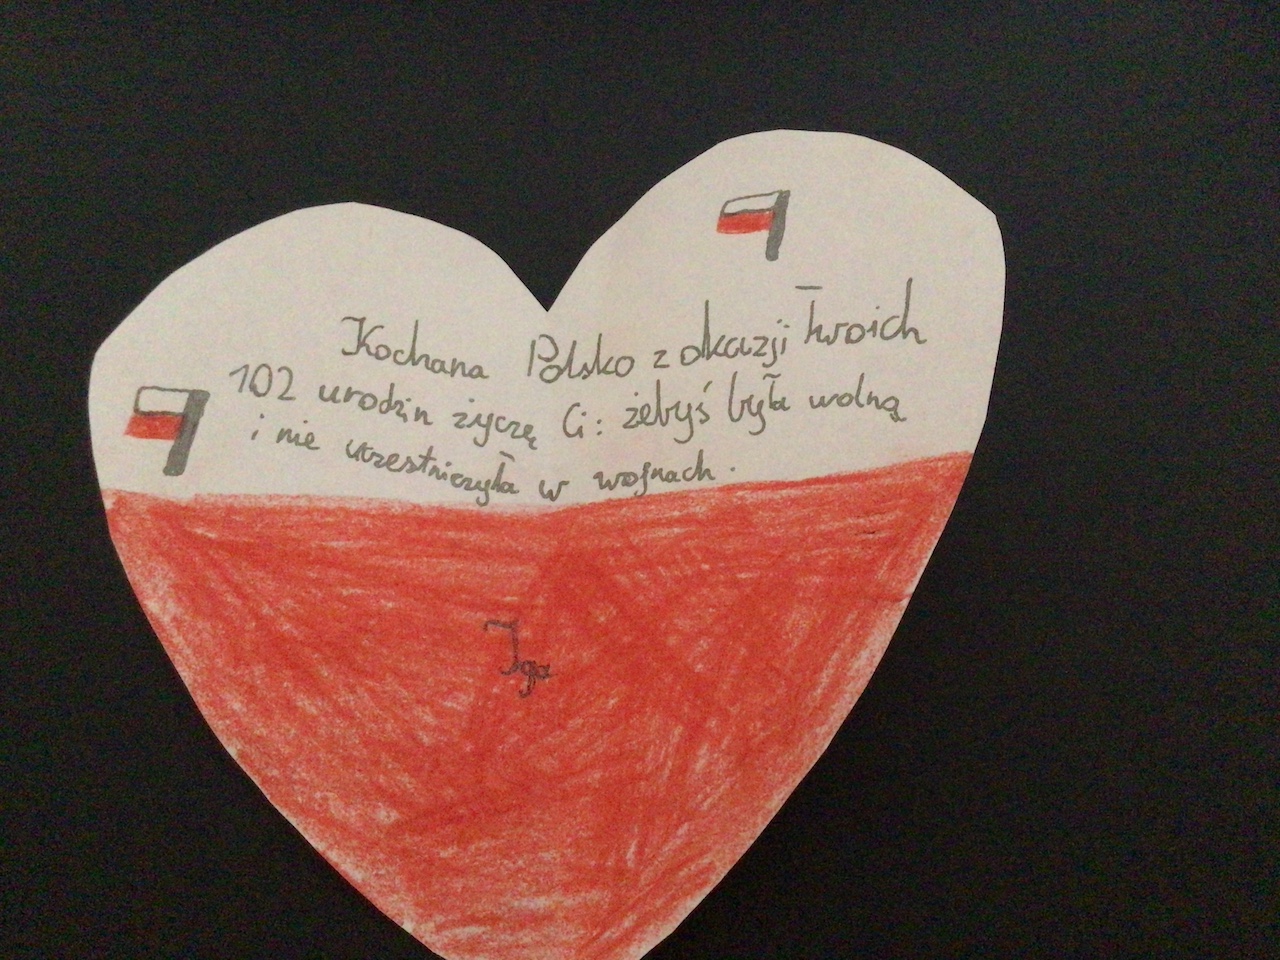 Kochana Polsko z okazji Twoich
102 urodzin życzę Ci: żebyś była wolną
i nie uczestniczyła w wojnach.
Iga